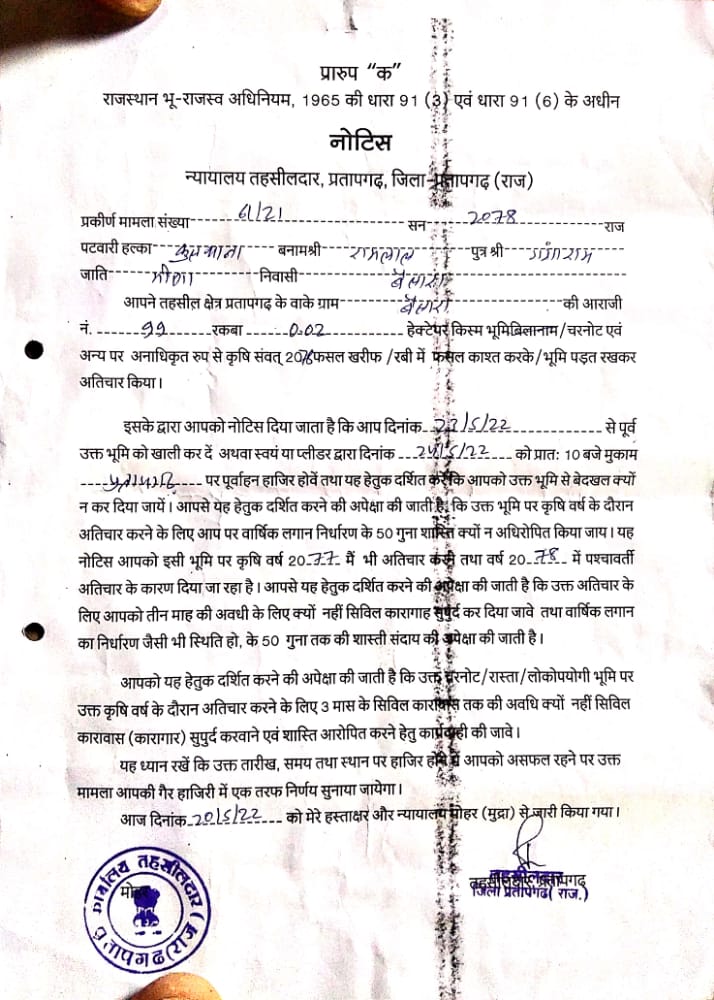 प्रारुप “क”
राजस्थान भू-राजस्व अधिनियम, 1965 की धारा 91 (3) एवं धारा 91 (6) के अधीन
नोटिस
न्यायालय तहसीलदार, प्रतापगढ़, जिला-प्रतापगढ़ (राज)
प्रकीर्ण मामला संख्या 61/21 सन 2078 राज
पटवारी हल्का बनामश्री रामलाल पुत्र श्री गंगाराम
जाति मीणा निवासी
आपने तहसील क्षेत्र प्रतापगढ़ के वाके ग्राम की आराजी
नं. 99 रकबा 0.02 हेक्टेयर किस्म भूमिबिलानाम/चरनोट एवं
अन्य पर अनाधिकृत रुप से कृषि संवत् 2078 फसल खरीफ /रबी में फसल काश्त करके/भूमि पड़त रखकर
अतिचार किया।
इसके द्वारा आपको नोटिस दिया जाता है कि आप दिनांक 23/5/22 से पूर्व
उक्त भूमि को खाली कर दें अथवा स्वयं या प्लीडर द्वारा दिनांक /5/22 को प्रातः 10 बजे मुकाम
प्रतापगढ़ पर पूर्वाहन हाजिर होवें तथा यह हेतुक दर्शित करें कि आपको उक्त भूमि से बेदखल क्यों
न कर दिया जायें। आपसे यह हेतुक दर्शित करने की अपेक्षा की जाती है, कि उक्त भूमि पर कृषि वर्ष के दौरान
अतिचार करने के लिए आप पर वार्षिक लगान निर्धारण के 50 गुना शास्ति क्यों न अधिरोपित किया जाय। यह
नोटिस आपको इसी भूमि पर कृषि वर्ष 2077 मैं भी अतिचार करने तथा वर्ष 2078 में पश्चावर्ती
अतिचार के कारण दिया जा रहा है। आपसे यह हेतुक दर्शित करने की अपेक्षा की जाती है कि उक्त अतिचार के
लिए आपको तीन माह की अवधी के लिए क्यों नहीं सिविल कारागाह सुपुर्द कर दिया जावे तथा वार्षिक लगान
का निर्धारण जैसी भी स्थिति हो, के 50 गुना तक की शास्ती संदाय की अपेक्षा की जाती है।
आपको यह हेतुक दर्शित करने की अपेक्षा की जाती है कि उक्त चरनोट/रास्ता/लोकोपयोगी भूमि पर
उक्त कृषि वर्ष के दौरान अतिचार करने के लिए 3 मास के सिविल कारावास तक की अवधि क्यों नहीं सिविल
कारावास (कारागार) सुपुर्द करवाने एवं शास्ति आरोपित करने हेतु कार्यवाही की जावे।
यह ध्यान रखें कि उक्त तारीख, समय तथा स्थान पर हाजिर होने में आपको असफल रहने पर उक्त
मामला आपकी गैर हाजिरी में एक तरफ निर्णय सुनाया जायेगा।
आज दिनांक 20/5/22 को मेरे हस्ताक्षर और न्यायालय मोहर (मुद्रा) से जारी किया गया।
मोहर
कार्यालय तहसीलदार
प्रतापगढ़ (राज)
तहसीलदार, प्रतापगढ़
तहसीलदार
जिला प्रतापगढ़ (राज.)